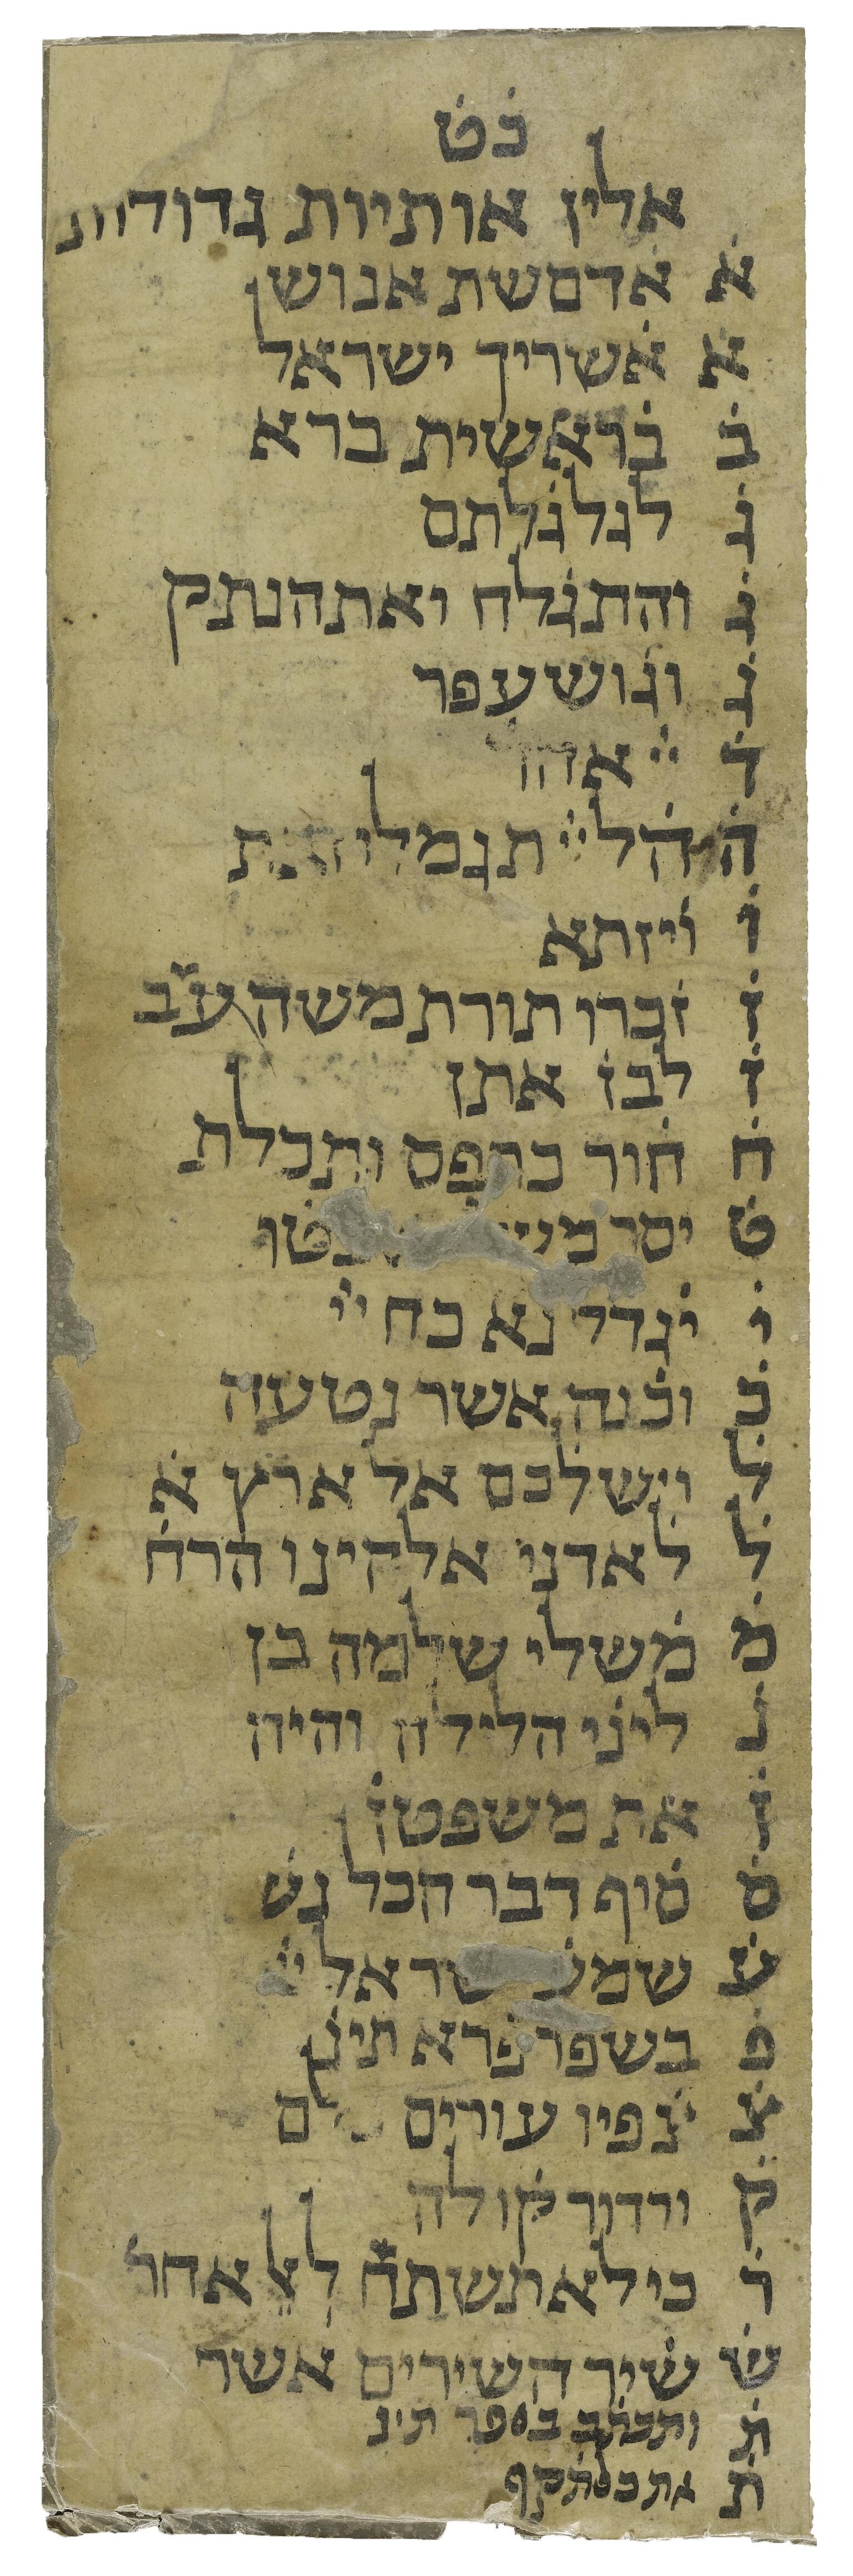 כט
אלין אותיות גדולות
א אדם שת אנוש
א אשריך ישראל
ב בראשית ברא
ג לגלגלתם
ג והתגלח ואת הנתק
ג וגוש עפר
ד יי אחד
ה הליי תגמלו זאת
ו ויזתא
ז זכרו תורת משה עב
ז לבז אתן
ח חור כרפס ותכלת
ט יסר שבטו
י יגדל נא כח ייי
כ וכנה אשר נטעה
ל וישלכם אל ארץ א
ל לאדני אלקינו הרח
מ משלי שלמה בן
נ ליני הלילה והיה
ן את משפטן
ס סוף דבר הכל נש
ע שמע ישראל ייי
פ בשפרפרא תינ
צ צפיו עורים כלם
ק ורדיר קולה
ר כי לא תשתח לאל אחר
ש שיר השירים אשר
ת ותכתב בספר תינ
ת את כל תקף